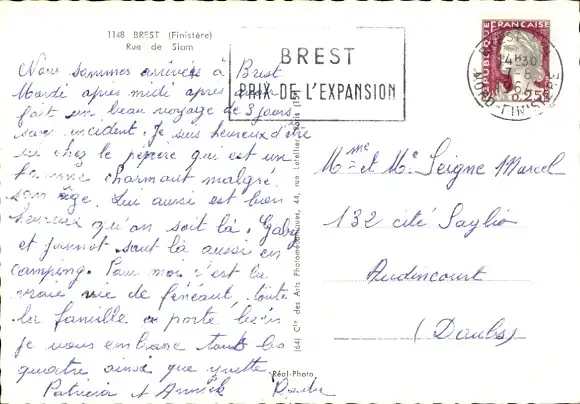 1148 BREST (Finistère)
Rue de Siam
Nous sommes arrivés à Brest
Mardi après midi après avoir
fait un beau voyage de 3 jours
sans incident. Je suis heureux d'être
ici chez le pépère qui est un
homme charmant malgré
son âge. Lui aussi est bien
heureux qu'on soit là. Gaby
et Jeannot sont là aussi en
camping. Pour moi c'est la
vraie vie de fénéant, toute
la famille se porte bien
je vous embrasse tous les
quatre ainsi que yvette
Patricia et Annick
BREST
PRIX DE L'EXPANSION
RÉPUBLIQUE FRANÇAISE
0,25
14H30
7-8
NORD-FINISTERE
Mme et Mr Seigne Marcel
132 cité Saglio
Audincourt
(Doubs)
(64) Cie des Arts Photomécaniques, 44, rue Letellier, Paris (15e)
Réal-Photo